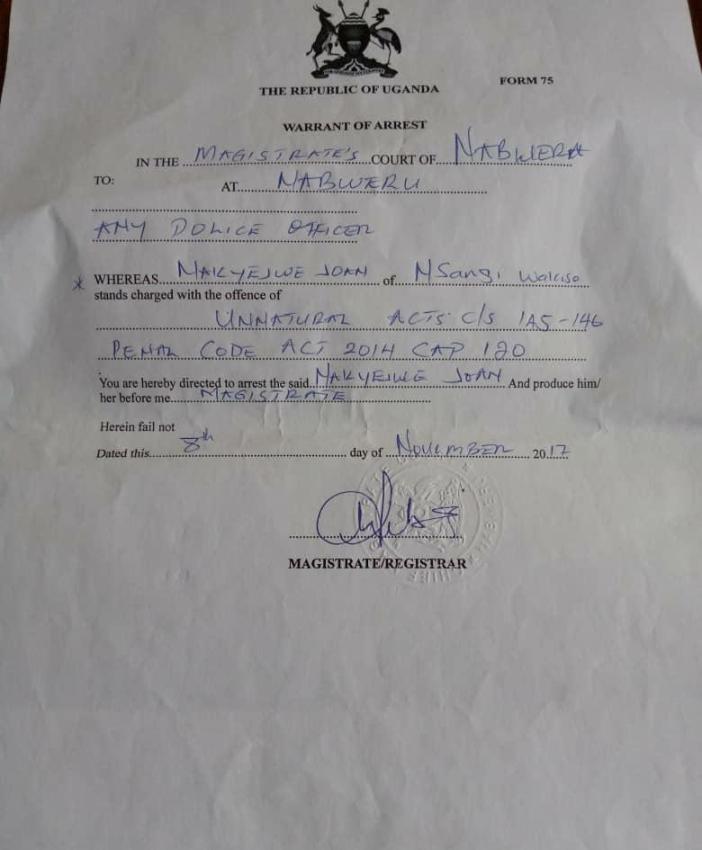 THE REPUBLIC OF UGANDA
FORM 75
WARRANT OF ARREST
IN THE MAGISTRATE'S COURT OF NABWERA
TO: AT NABWERU
ANY POLICE OFFICER
WHEREAS NAKYEJWE JOAN of NSangi Wakiso
stands charged with the offence of
UNNATURAL ACTS C/S 145-146
PENAL CODE ACT 2014 CAP 120
You are hereby directed to arrest the said NAKYEJWE JOAN And produce him/
her before me MAGISTRATE
Herein fail not
Dated this 8th day of NOVEMBER 2017
MAGISTRATE/REGISTRAR